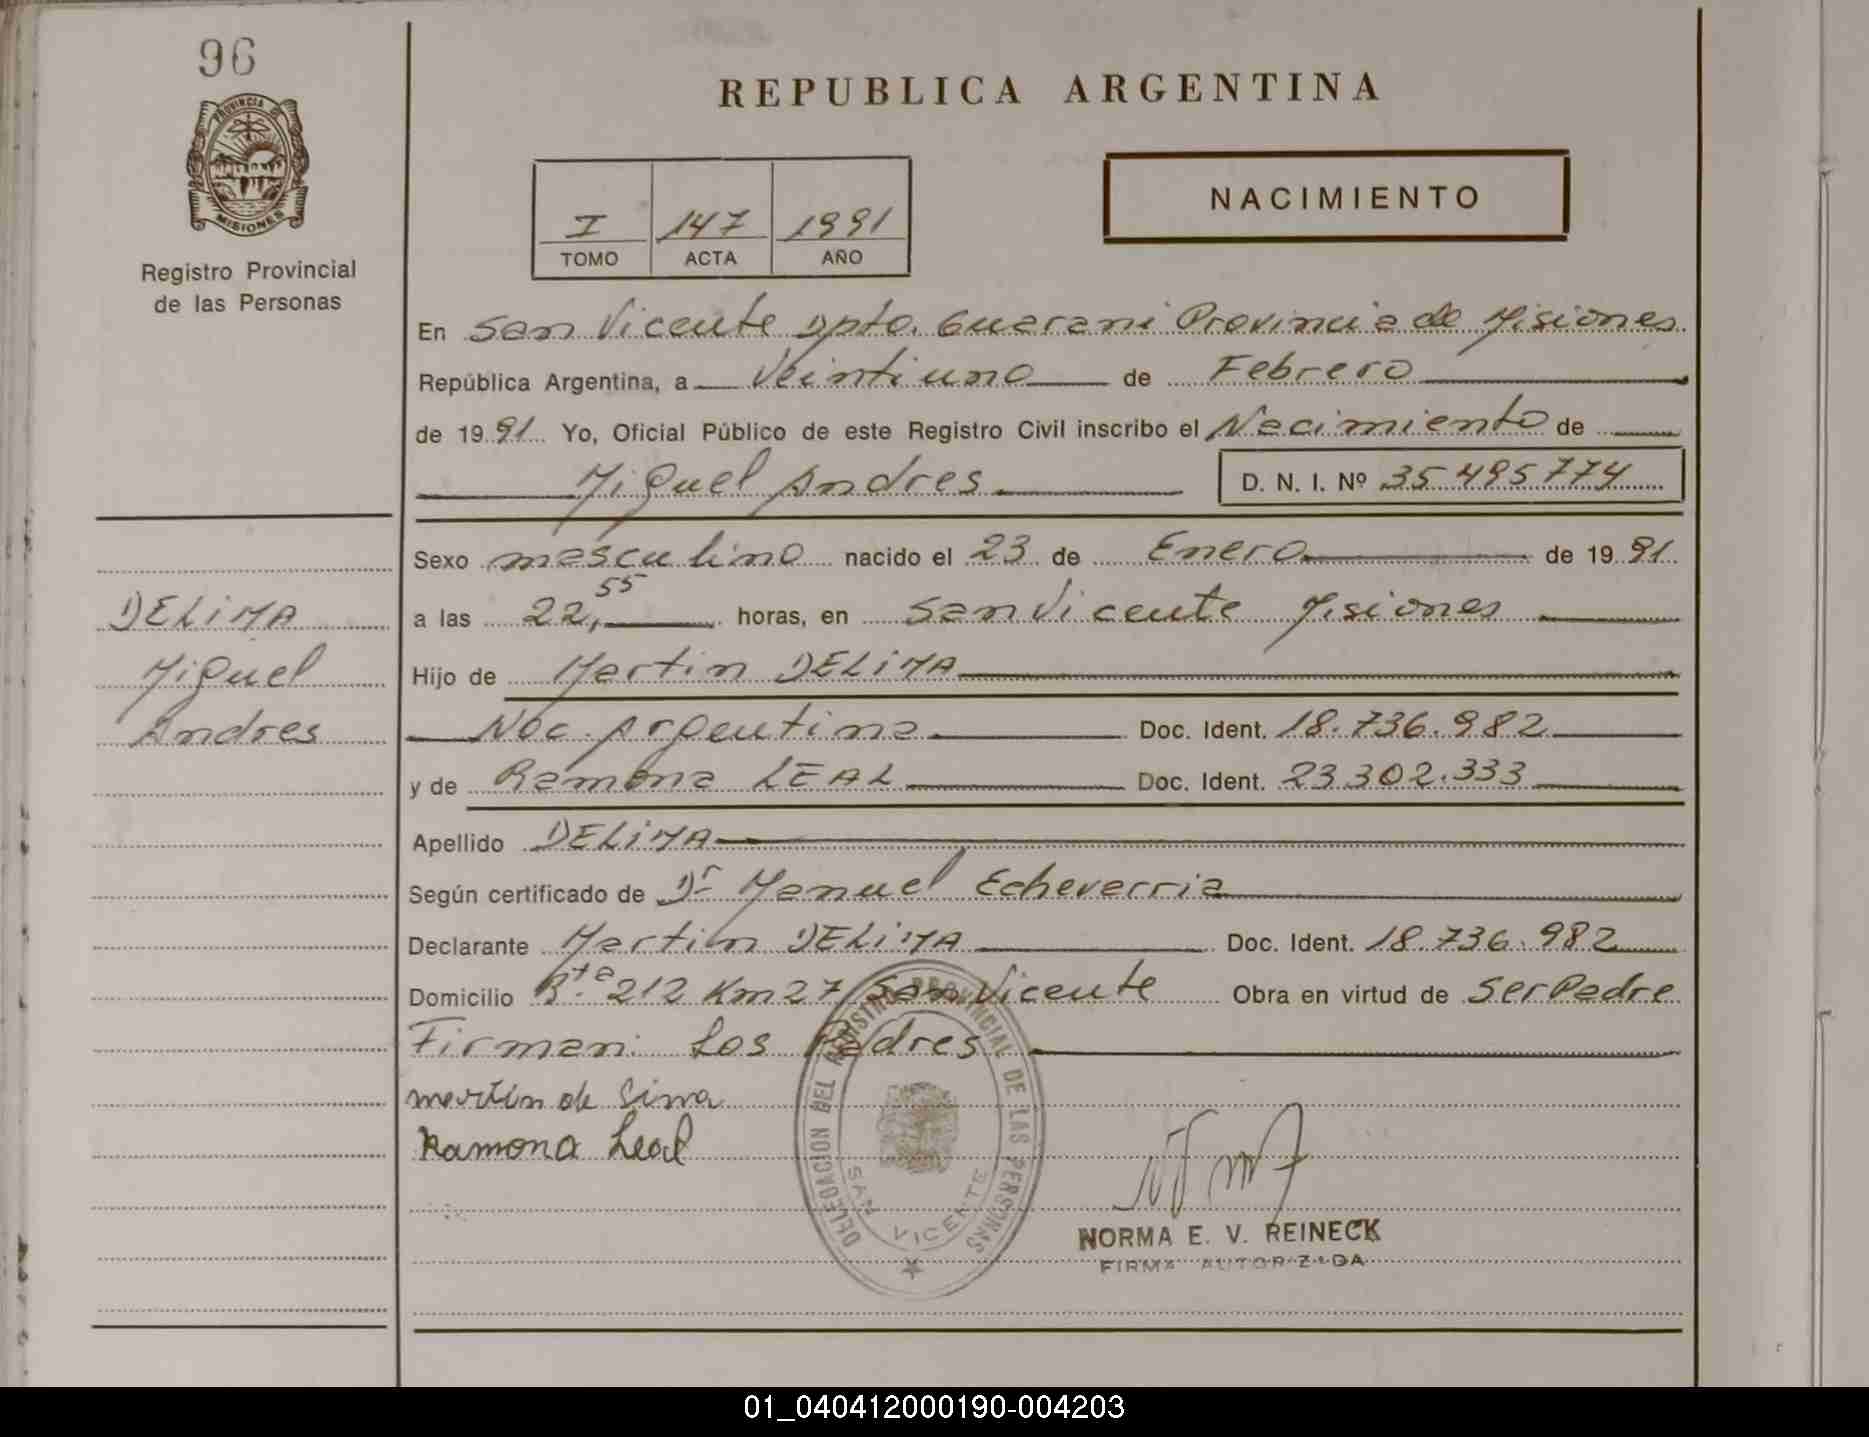 96
PROVINCIA DE
MISIONES
Registro Provincial
de las Personas
REPUBLICA ARGENTINA
I 147 1991
TOMO ACTA AÑO
NACIMIENTO
En San Vicente Dpto. Guarani Provincia de Misiones
República Argentina, a Veintiuno de Febrero
de 1991 Yo, Oficial Público de este Registro Civil inscribo el Nacimiento de
Miguel Andres D. N. I. Nº 35 495774
Sexo masculino nacido el 23 de Enero de 1991
a las 22,55 horas, en San Vicente Misiones
Hijo de Martin DELiMA
Nac. Argentina Doc. Ident. 18.736.982
y de Ramona LEAL Doc. Ident. 23 302.333
Apellido DELiMA
Según certificado de Dr Manuel Echeverria
Declarante Martin DELiMA Doc. Ident. 18 736.982
Domicilio Rta 212 Km 27 San Vicente Obra en virtud de Ser Padre
Firman: Los Padres
martin de Lima
Ramona Leal
DELEGACION DEL REGISTRO PROVINCIAL DE LAS PERSONAS
SAN VICENTE
NORMA E. V. REINECK
FIRMA AUTORIZADA
DELiMA
Miguel
Andres
01_040412000190-004203